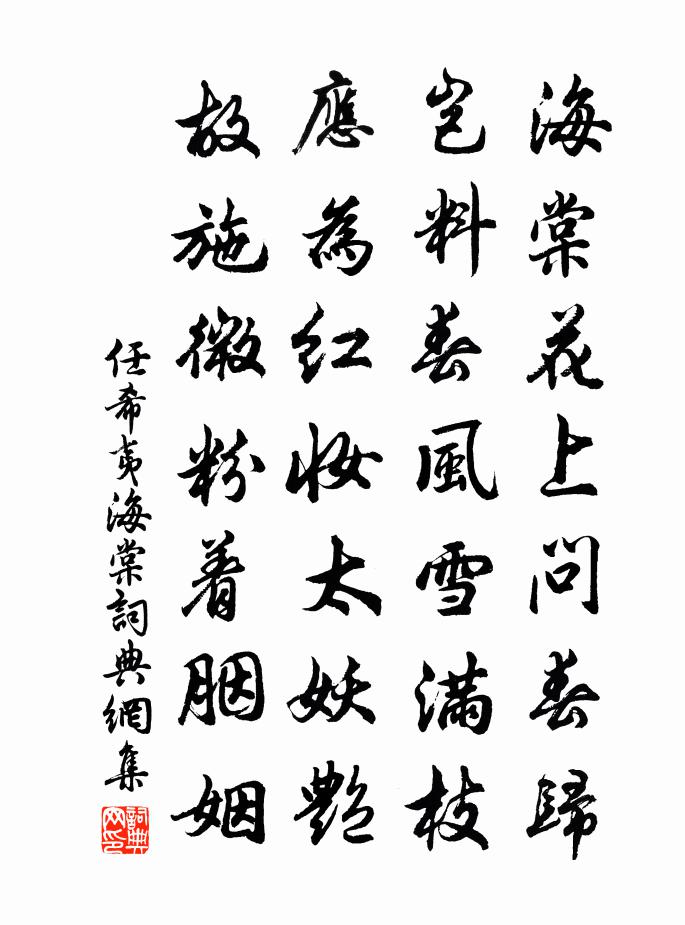 海棠花上問春歸
豈料春風雪滿枝
應為紅妝太妖艷
故施微粉着胭姻
任希夷海棠詞典網集
詞典网印